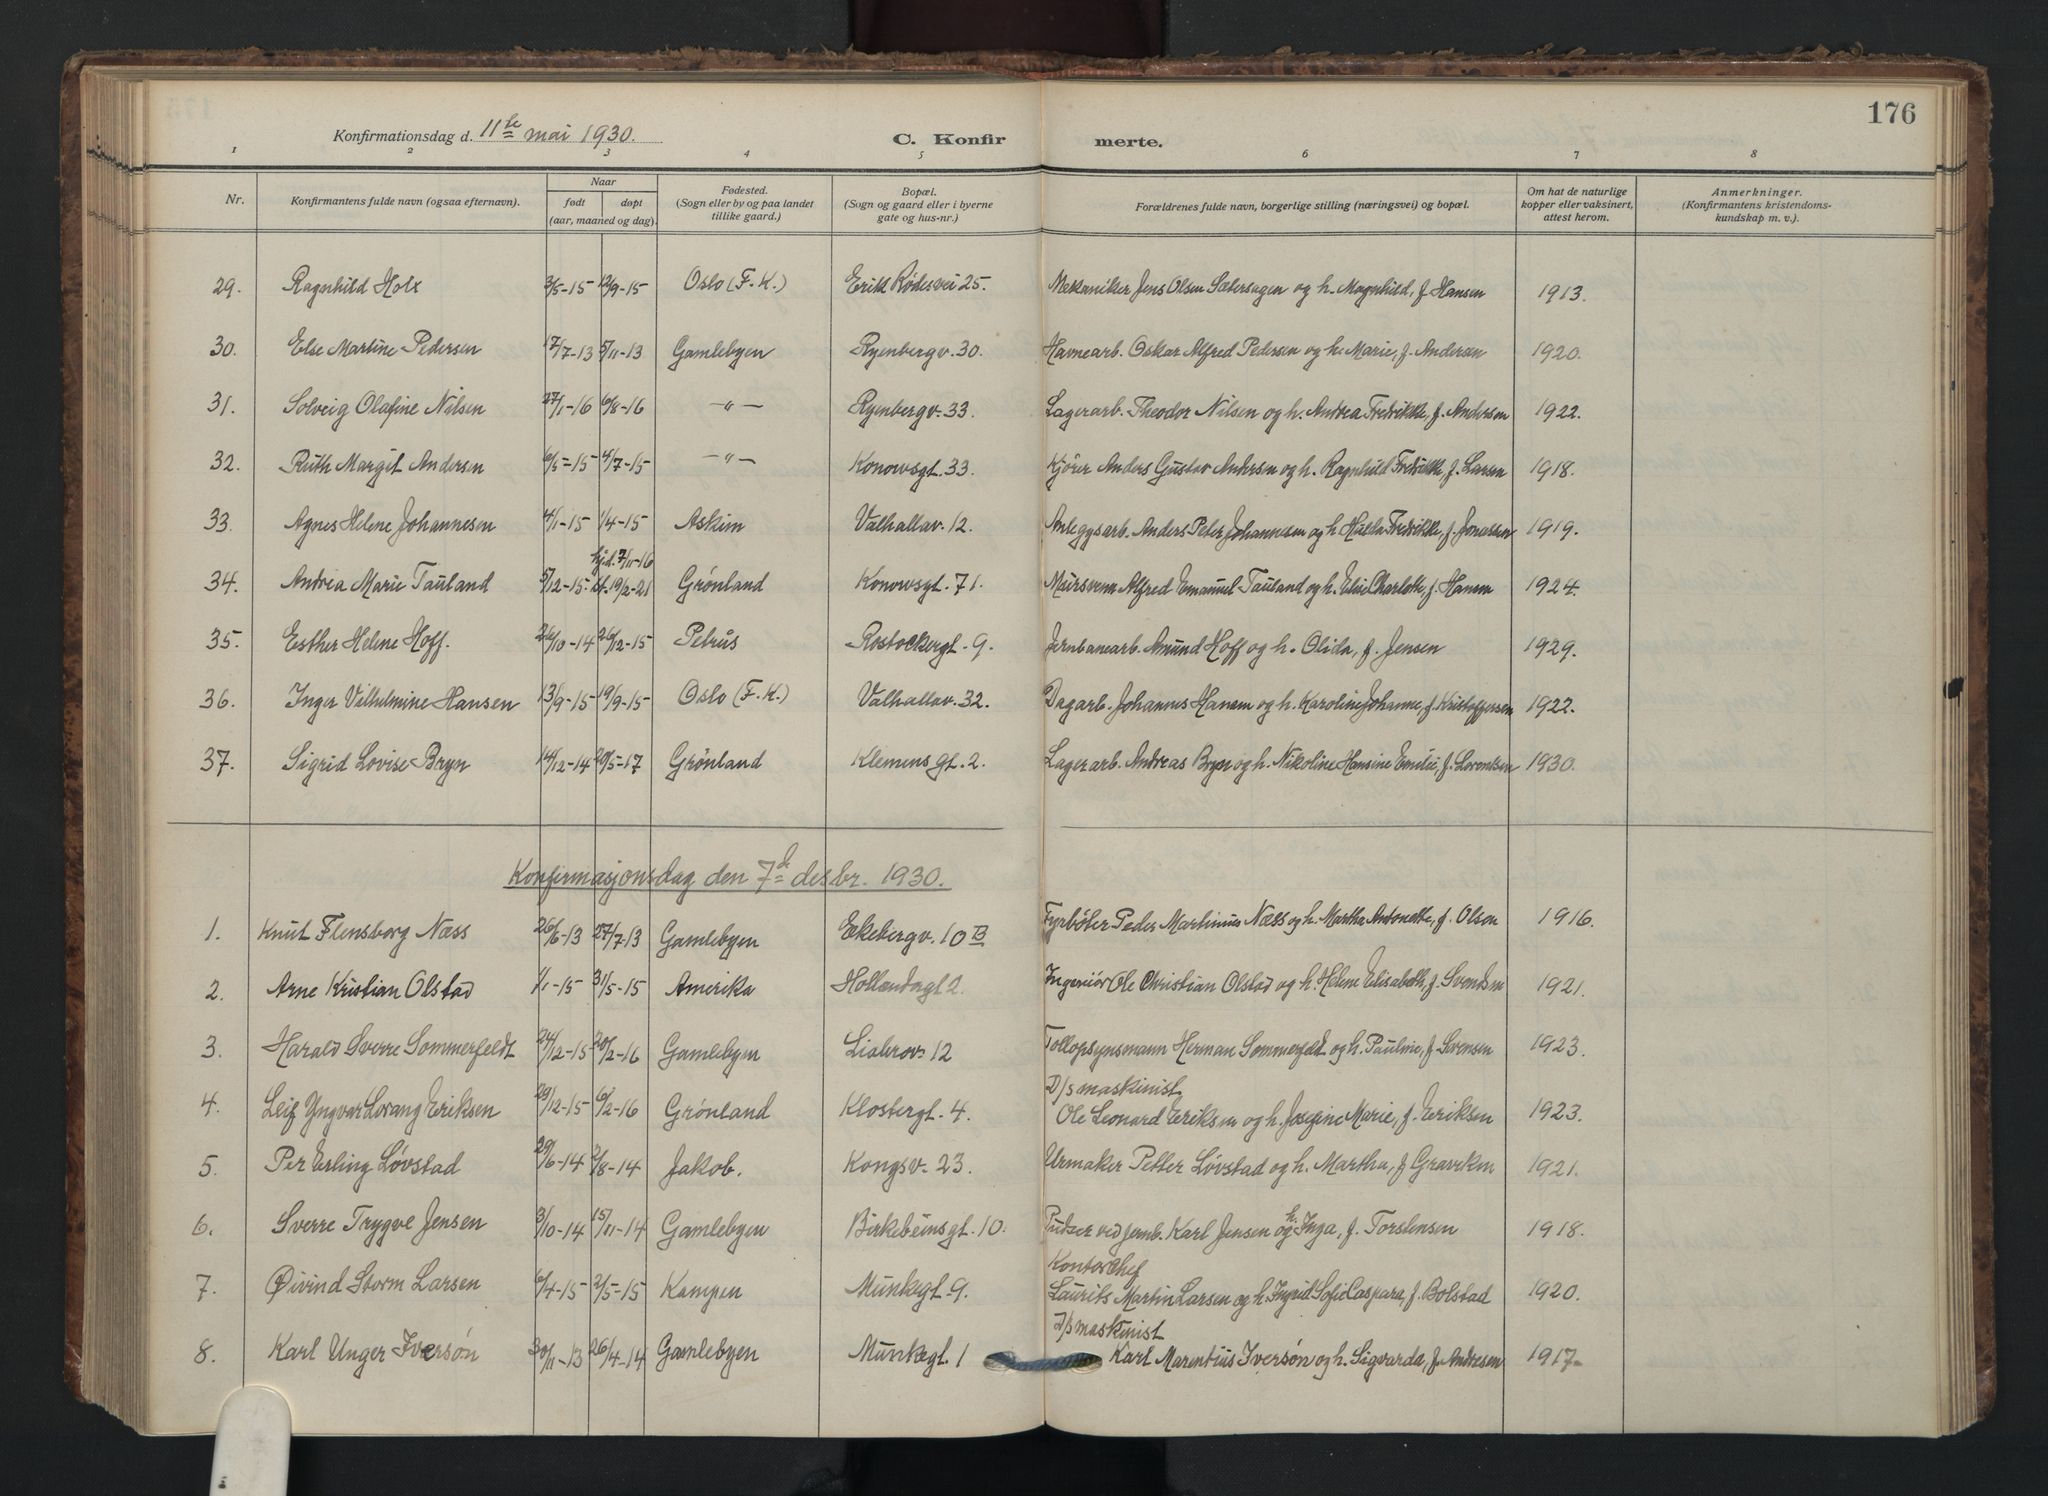 176
Konfirmationsdag d. 11te mai 1930.
C. Konfirmerte.
1 2 3 4 5 6 7 8
Nr. Konfirmantens fulde navn (ogsaa efternavn). Naar født døpt (aar, maaned og dag). Fødested. (Sogn eller by og paa landet tillike gaard.) Bopæl. (Sogn og gaard eller i byerne gate og hus-nr.) Forældrenes fulde navn, borgerlige stilling (næringsvei) og bopæl. Om hat de naturlige kopper eller vaksinert, attest herom. Anmerkninger. (Konfirmantens kristendomskundskap m. v.).
29. Ragnhild Holt 3/5-15 12/9-15 Oslo (F.K.) Erik Rødesvei 25. Mekaniker Jens Olsen Sætersagen og h. Magnhild, f. Hansen 1913.
30. Else Martine Pedersen 17/7-13 5/11-13 Gamlebyen Ryenbergv. 30. Havnearb. Oskar Alfred Pedersen og h. Marie, f. Andersen 1920.
31. Solveig Olafine Nilsen 27/1-16 6/8-16 —"— Ryenbergv. 33. Lagerarb. Theodor Nilsen og h. Andrea Fredrikke, f. Andersen 1922.
32. Ruth Margit Andersen 6/5-15 4/7-15 —"— Konowsgt. 33. Kjører Anders Gustav Andersen og h. Ragnhild Fredrikke, f. Larsen 1918.
33. Agnes Helene Johannesen 4/1-15 1/4-15 Askim Valhallav. 12. Anleggsarb. Anders Peter Johannesen og h. Hulda Fredrikke, f. Jonassen 1919.
hjd. 7/11-16
34. Andrea Marie Tauland 5/12-15 st. 19/2-21 Grønland Konowsgt. 71. Mursvenn Alfred Emanuel Tauland og h. Elise Charlotte, f. Hansen 1924.
35. Esther Helene Hoff. 26/10-14 26/12-15 Petrus Rostockergt. 9. Jernbanearb. Amund Hoff og h. Olida, f. Jensen 1929.
36. Inger Vilhelmine Hansen 13/9-15 19/9-15 Oslo (F.K.) Valhallav. 32. Dagarb. Johannes Hansen og h. Karoline Johanne, f. Kristoffersen 1922.
37. Sigrid Lovise Bryn 14/12-14 20/5-17 Grønland Klemensgt. 2. Lagerarb. Andreas Bryn og h. Nikoline Hansine Emilie, f. Lorentsen 1930.
Konfirmasjonsdag den 7de desbr. 1930.
1. Knut Flensborg Næss 26/6-13 27/7-13 Gamlebyen Ekebergv. 10 B Fyrbøter Peder Martinius Næss og h. Martha Antonette, f. Olsen 1916.
2. Arne Kristian Olstad 1/1-15 31/5-15 Amerika Hollendergt 2. Ingeniør Ole Christian Olstad og h. Helene Elisabeth, f. Svendsen 1921.
3. Harald Sverre Sommerfeldt 24/12-15 20/2-16 Gamlebyen Liabrov. 12 Tollopsynsmann Herman Sommerfeldt og h. Pauline, f. Sørensen 1923.
D/s maskinist
4. Leif Yngvar Lorang Eriksen 29/12-15 6/2-16 Grønland Klostergt. 4. Ole Leonard Eriksen og h. Josefine Marie, f. Eriksen 1923.
5. Per Erling Løvstad 29/6-14 2/8-14 Jakob. Kongsv. 23. Urmaker Petter Løvstad og h. Martha, f. Graveken 1921.
6. Sverre Trygve Jensen 3/10-14 15/11-14 Gamlebyen Birkebeinsgt. 10. Pudser ved jernb. Karl Jensen og h. Inga, f. Torstensen 1918.
Kontorchef
7. Øivind Storm Larsen 6/4-15 2/5-15 Kampen Munkegt. 9. Laurits Martin Larsen og h. Ingrid Sofie Caspara, f. Bolstad 1920.
D/s maskinist
8. Karl Unger Iversøn 30/11-13 26/4-14 Gamlebyen Munkegt. 1 Karl Marentius Iversøn og h. Sigvarda, f. Andresen 1917.